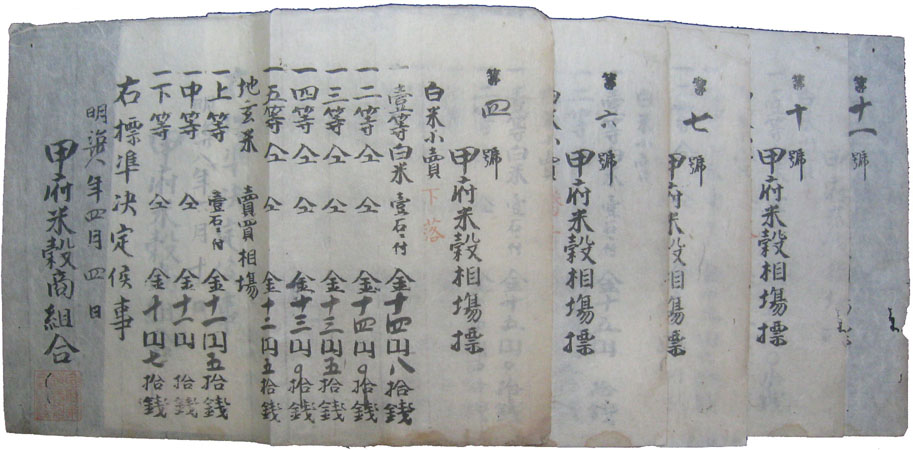 第十一號
第十號
甲府米穀相塲標
第七號
甲府米穀相塲標
第六號
甲府米穀相塲標
第四號
甲府米穀相塲標
白米小賣 下落
一壹等白米 壹石ニ付 金十四円八拾銭
一二等 仝 仝 金十四円〇拾銭
一三等 仝 仝 金十三円五拾銭
一四等 仝 仝 金十三円〇拾銭
一五等 仝 仝 金十二円五拾銭
地玄米 賣買相塲
一上等 壹石ニ付 金十一円五拾銭
一中等 仝 金十一円 拾銭
一下等 仝 金十円七拾銭
右標準决定候事
明治 年四月四日
甲府米穀商組合